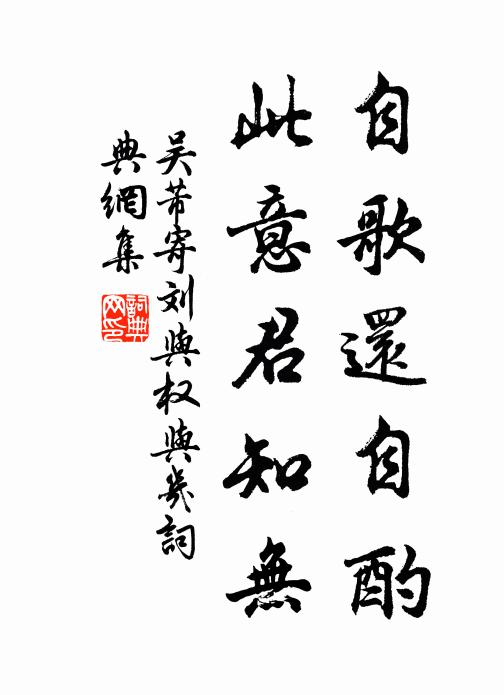 自歌還自酌
此意君知無
吴芾寄刘與权與幾詞
典網集
詞典网印